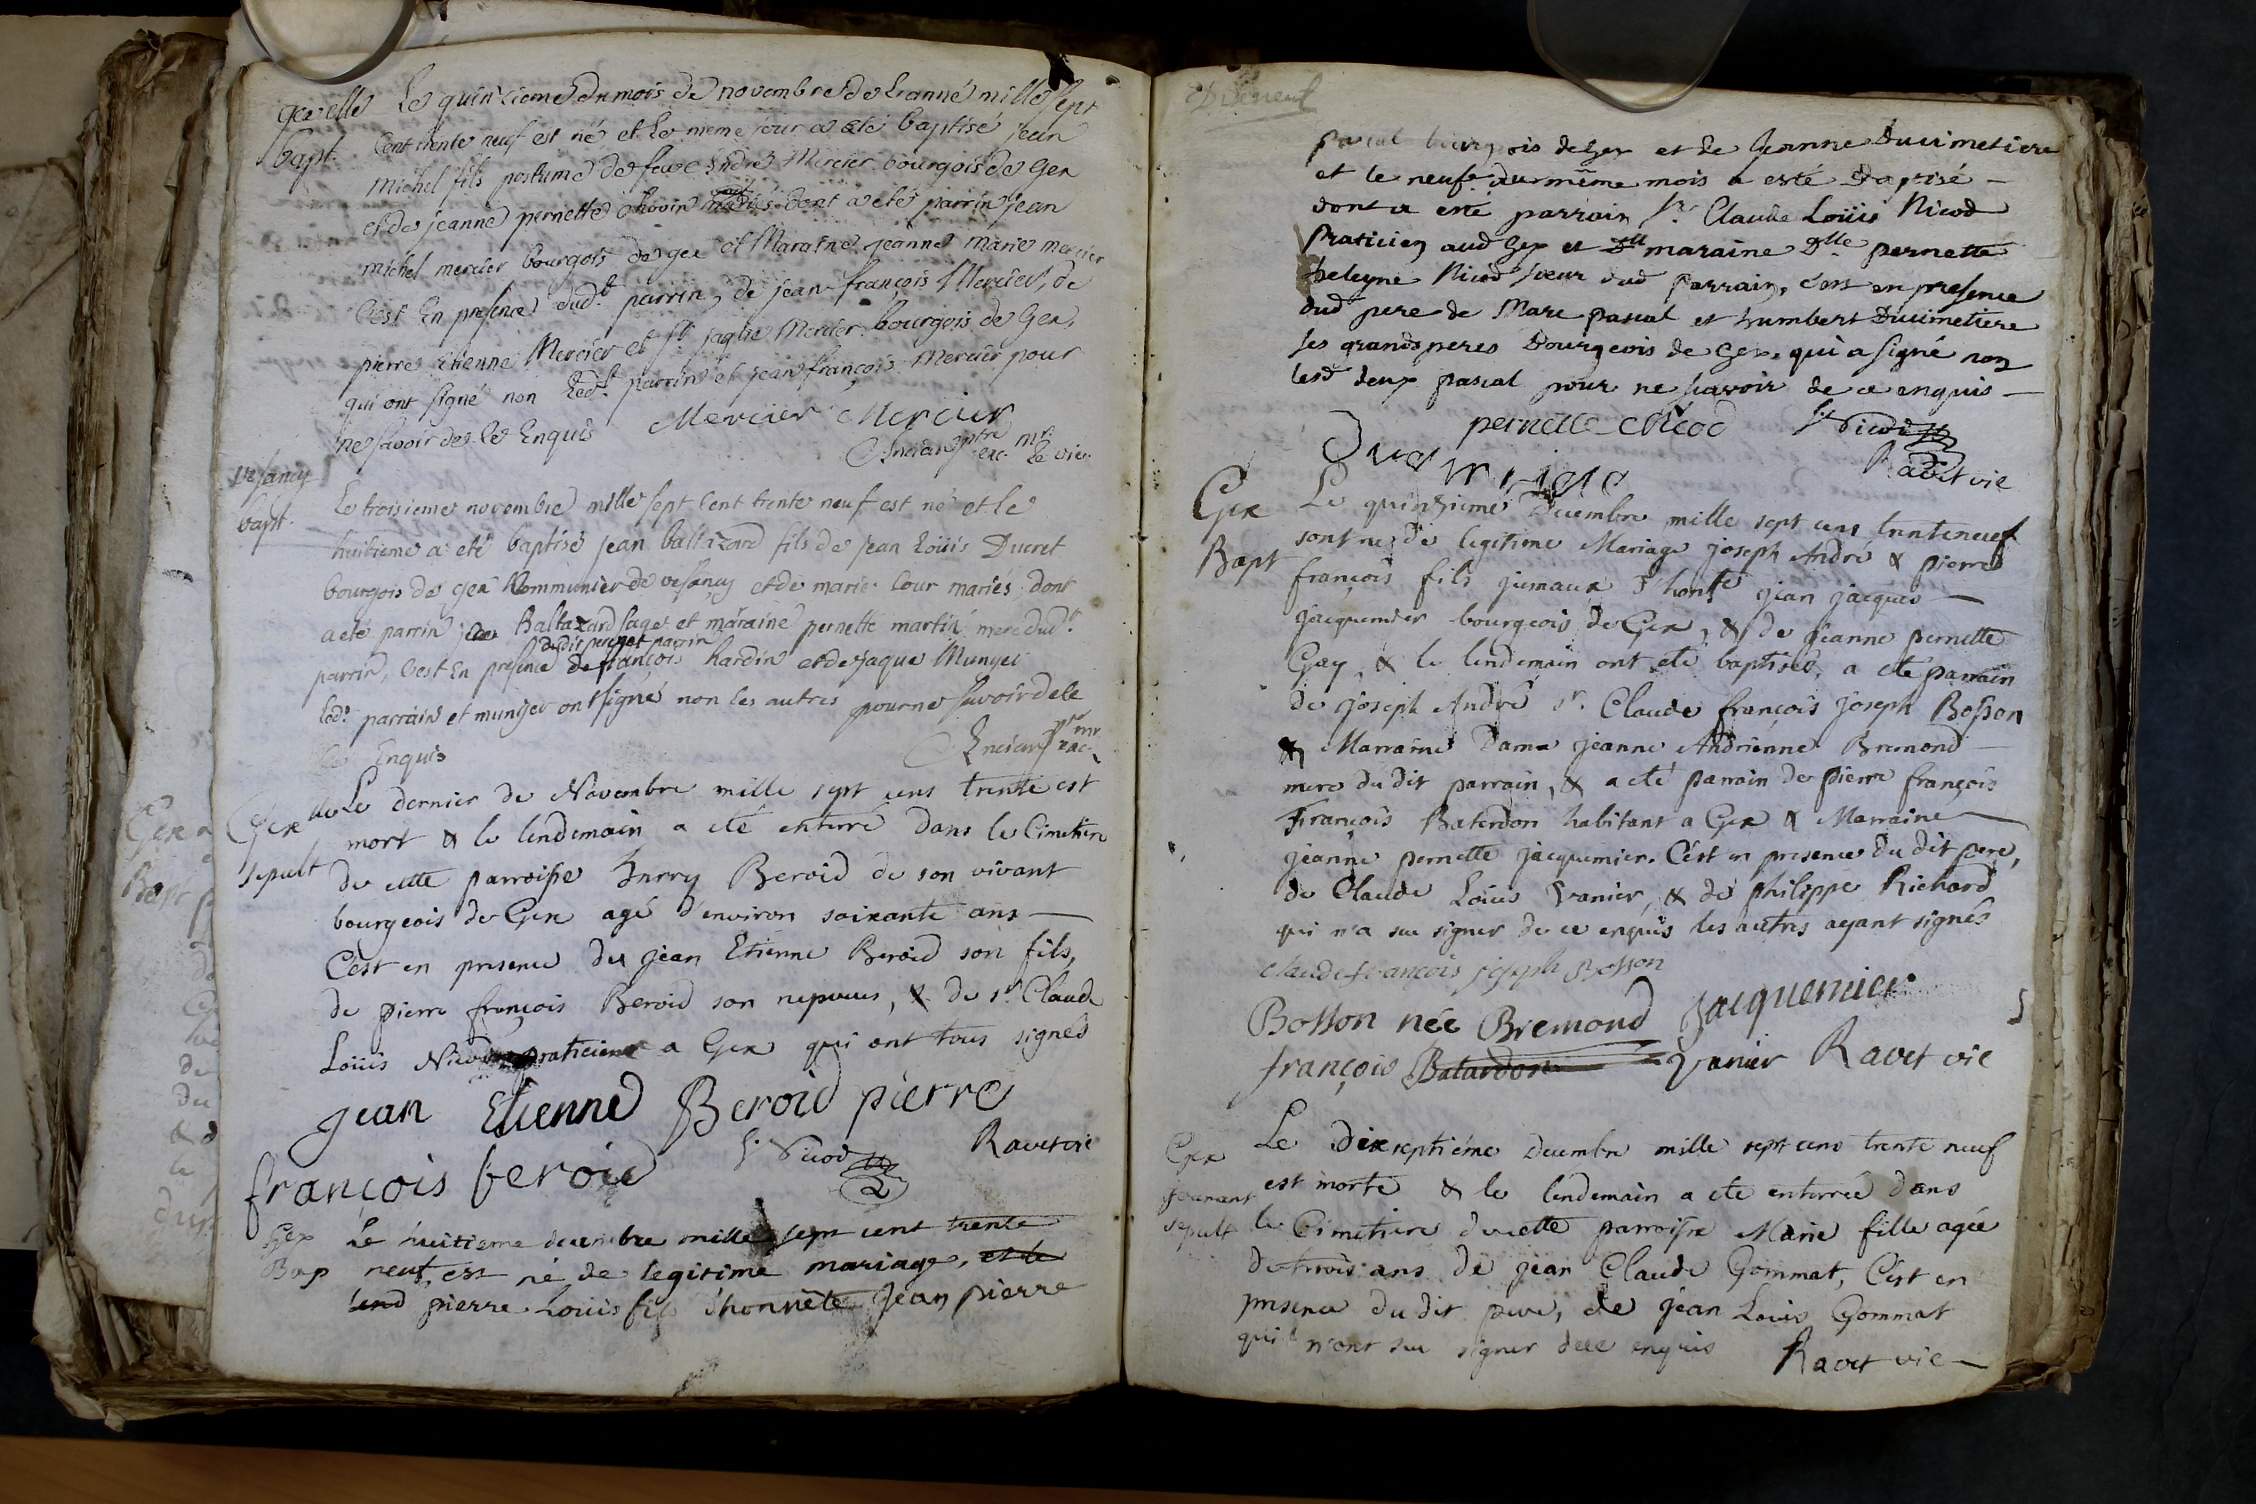 Gex elle Le quinzieme du mois de novembre de Lanné mille sept
bapt. Cent trente neuf est né et Le meme jour a eté baptisé jean
michel fils postume de feu André Mercier bourgois de Gex
et de jeanne pernette Chovin mariés dont a eté parrin jean
michel mercier bourgois de gex et Maraine jeanne marie mercier
C'est En presence dud.t parrin, de jean françois Mercier, de
pierre Etienne Mercier et Sr. jaque Mercier bourgois de Gex,
qui ont signé non Led.t parrin et jean françois Mercier pour
ne savoir de ce Enquis Mercier Mercier
ptre vic.
vesancy
bapt. Le troisieme novembre mille sept Cent trente neuf est né et le
huitieme a eté baptisé jean baltazard fils de jean Loüis Ducret
bourgois de gex Communier de vesancy et de marie Cour mariés, dont
a eté parrin jean Baltazard sage et maraine pernette martin mere dud.t
dudit perret parrin
parrin, C'est En presence de françois hardin et de jaque Munyer
Led.t parrain et munyer ont signé non les autres pour ne savoir de ce
Enquis
Gex Le dernier de Novembre mille sept cens trente est
mort & le lendemain a eté enterré dans le Cimetiere
sepult de cette parroisse Beroid de son vivant
bourgeois de Gex agé d'environ soixante ans —
C'est en presence de jean Etienne Beroid son fils,
de pierre françois Beroid son nepveu, & de sr. Claude
Loüis Nicod praticien a Gex qui ont tous signés
jean Etienne Beroid pierre
françois beroid Nicod Ravet vic
Gex Le huitieme decembre mille sept cent trente
Bap neuf, est né de legitime mariage, et le
lend pierre Loüis fils d'honnête Jean pierre
pascal bourgois de Gex et de Jeanne Ducimetiere
et le neuf. du même mois a esté Baptisé —
dont a esté parrain Sr. Claude Loüis Nicod
praticien aud Gex et Dlle maraine Dlle. pernette
Nicod sœur dud parrain, c'est en presence
dud pere de Marc pascal et humbert Ducimetiere
ses grands peres Bourgeois de Gex, qui a signé non
lesd deux pascal pour ne scavoir de ce enquis —
pernette Nicod Nicod
Ducimetiere Ravet vic
Gex Le quinzieme Decembre mille sept cens trenteneuf
sont né de legitime Mariage joseph André & pierre
Bapt françois fils jumaux d'honte jean jacques —
jacquemier bourgeois de Gex, & de jeanne pernette
Gay, & le lendemain ont eté baptisés, a eté parrain
de joseph André sr. Claude françois joseph Bosson
& Marraine Dame jeanne Andrienne Bremond —
mere du dit parrain, & a eté parrain de pierre françois
François Baterdon habitant a Gex & Marraine —
jeanne pernette jacquemier. C'est en presence du dit pere,
de Claude Loüis Vanier, & de philippe Richard
qui n'a sçu signer de ce enquis les autres ayant signés
claude françois joseph Bosson
Bosson née Bremond Jacquemier
françois Batardon Vanier Ravet vic
Gex Le Dixseptiéme Decembre mille sept cens trente neuf
est morte & le lendemain a eté enterrée dans
sepult le Cimetiere de cette parroisse Marie fille agée
de trois ans de jean Claude Gommat, C'est en
presence du dit pere, de jean Louis Gommat
qui n'ont sçu signer de ce enquis Ravet vic —